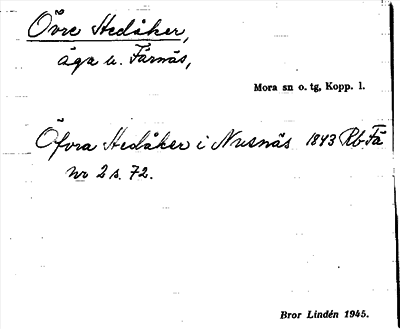 Övre Hedåker,
äga u. Färnäs,
Mora sn o. tg, Kopp. l.
Öfvra Hedåker i Nusnäs 1843 Rb Fä
nr 2 s. 72.
Bror Lindén 1945.